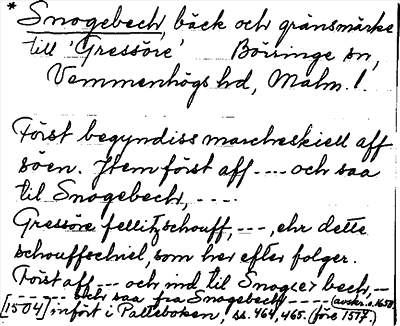 * Snogebech, bäck och gränsmärke
till 'Gressöre' Börringe sn,
Vemmenhögs hd, Malm. l.
Först begyndiss marcheskiell aff
söen. Item först aff ---- och saa
til Snogebech, ----.
Gressöre fellitz schouff, ---, ehr dette
schouffschiel, som her efter folger.
Först aff --- och ind til Snoge bech, --
--- och saa fra Snogebech ---- (avskr. o. 1650
[1504] infört i Palteboken, ss. 464, 465. (före 1517.)